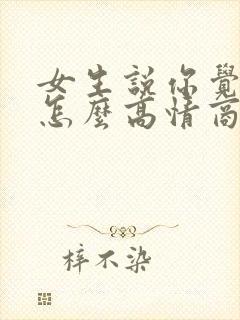 女生說你覺
怎麼高情商
梓不染